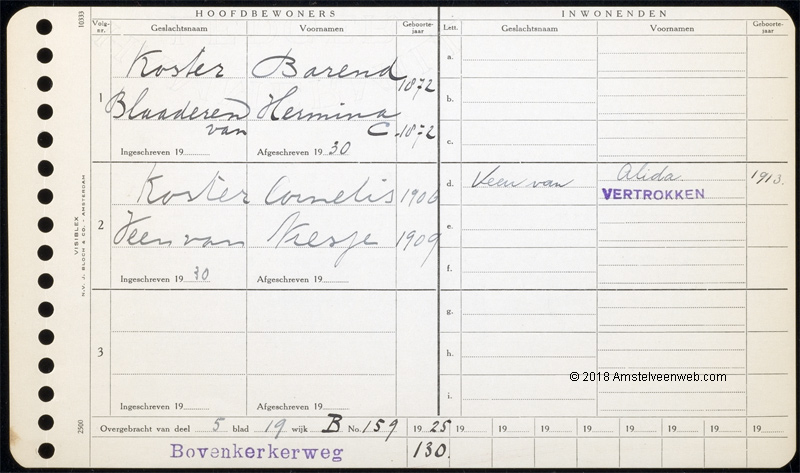 HOOFDBEWONERS
INWONENDEN
Volg-nr. Geslachtsnaam Voornamen Geboorte-jaar
Lett. Geslachtsnaam Voornamen Geboorte-jaar
1
Koster Barend 1872
Blaaderen van Hermina C. 1872
Ingeschreven 19 Afgeschreven 1930
2
Koster Cornelis 1906
Veen van Niesje 1909
Ingeschreven 1930 Afgeschreven 19
3
Ingeschreven 19 Afgeschreven 19
a.
b.
c.
d. Veen van Alida 1913.
VERTROKKEN
e.
f.
g.
h.
i.
© 2018 Amstelveenweb.com
Overgebracht van deel 5 blad 19 wijk B No. 159 1925 19 19 19 19 19 19 19 19
Bovenkerkerweg 130.
10333
VISIBLEX
N.V. J. BLOCH & CO. - AMSTERDAM
2500